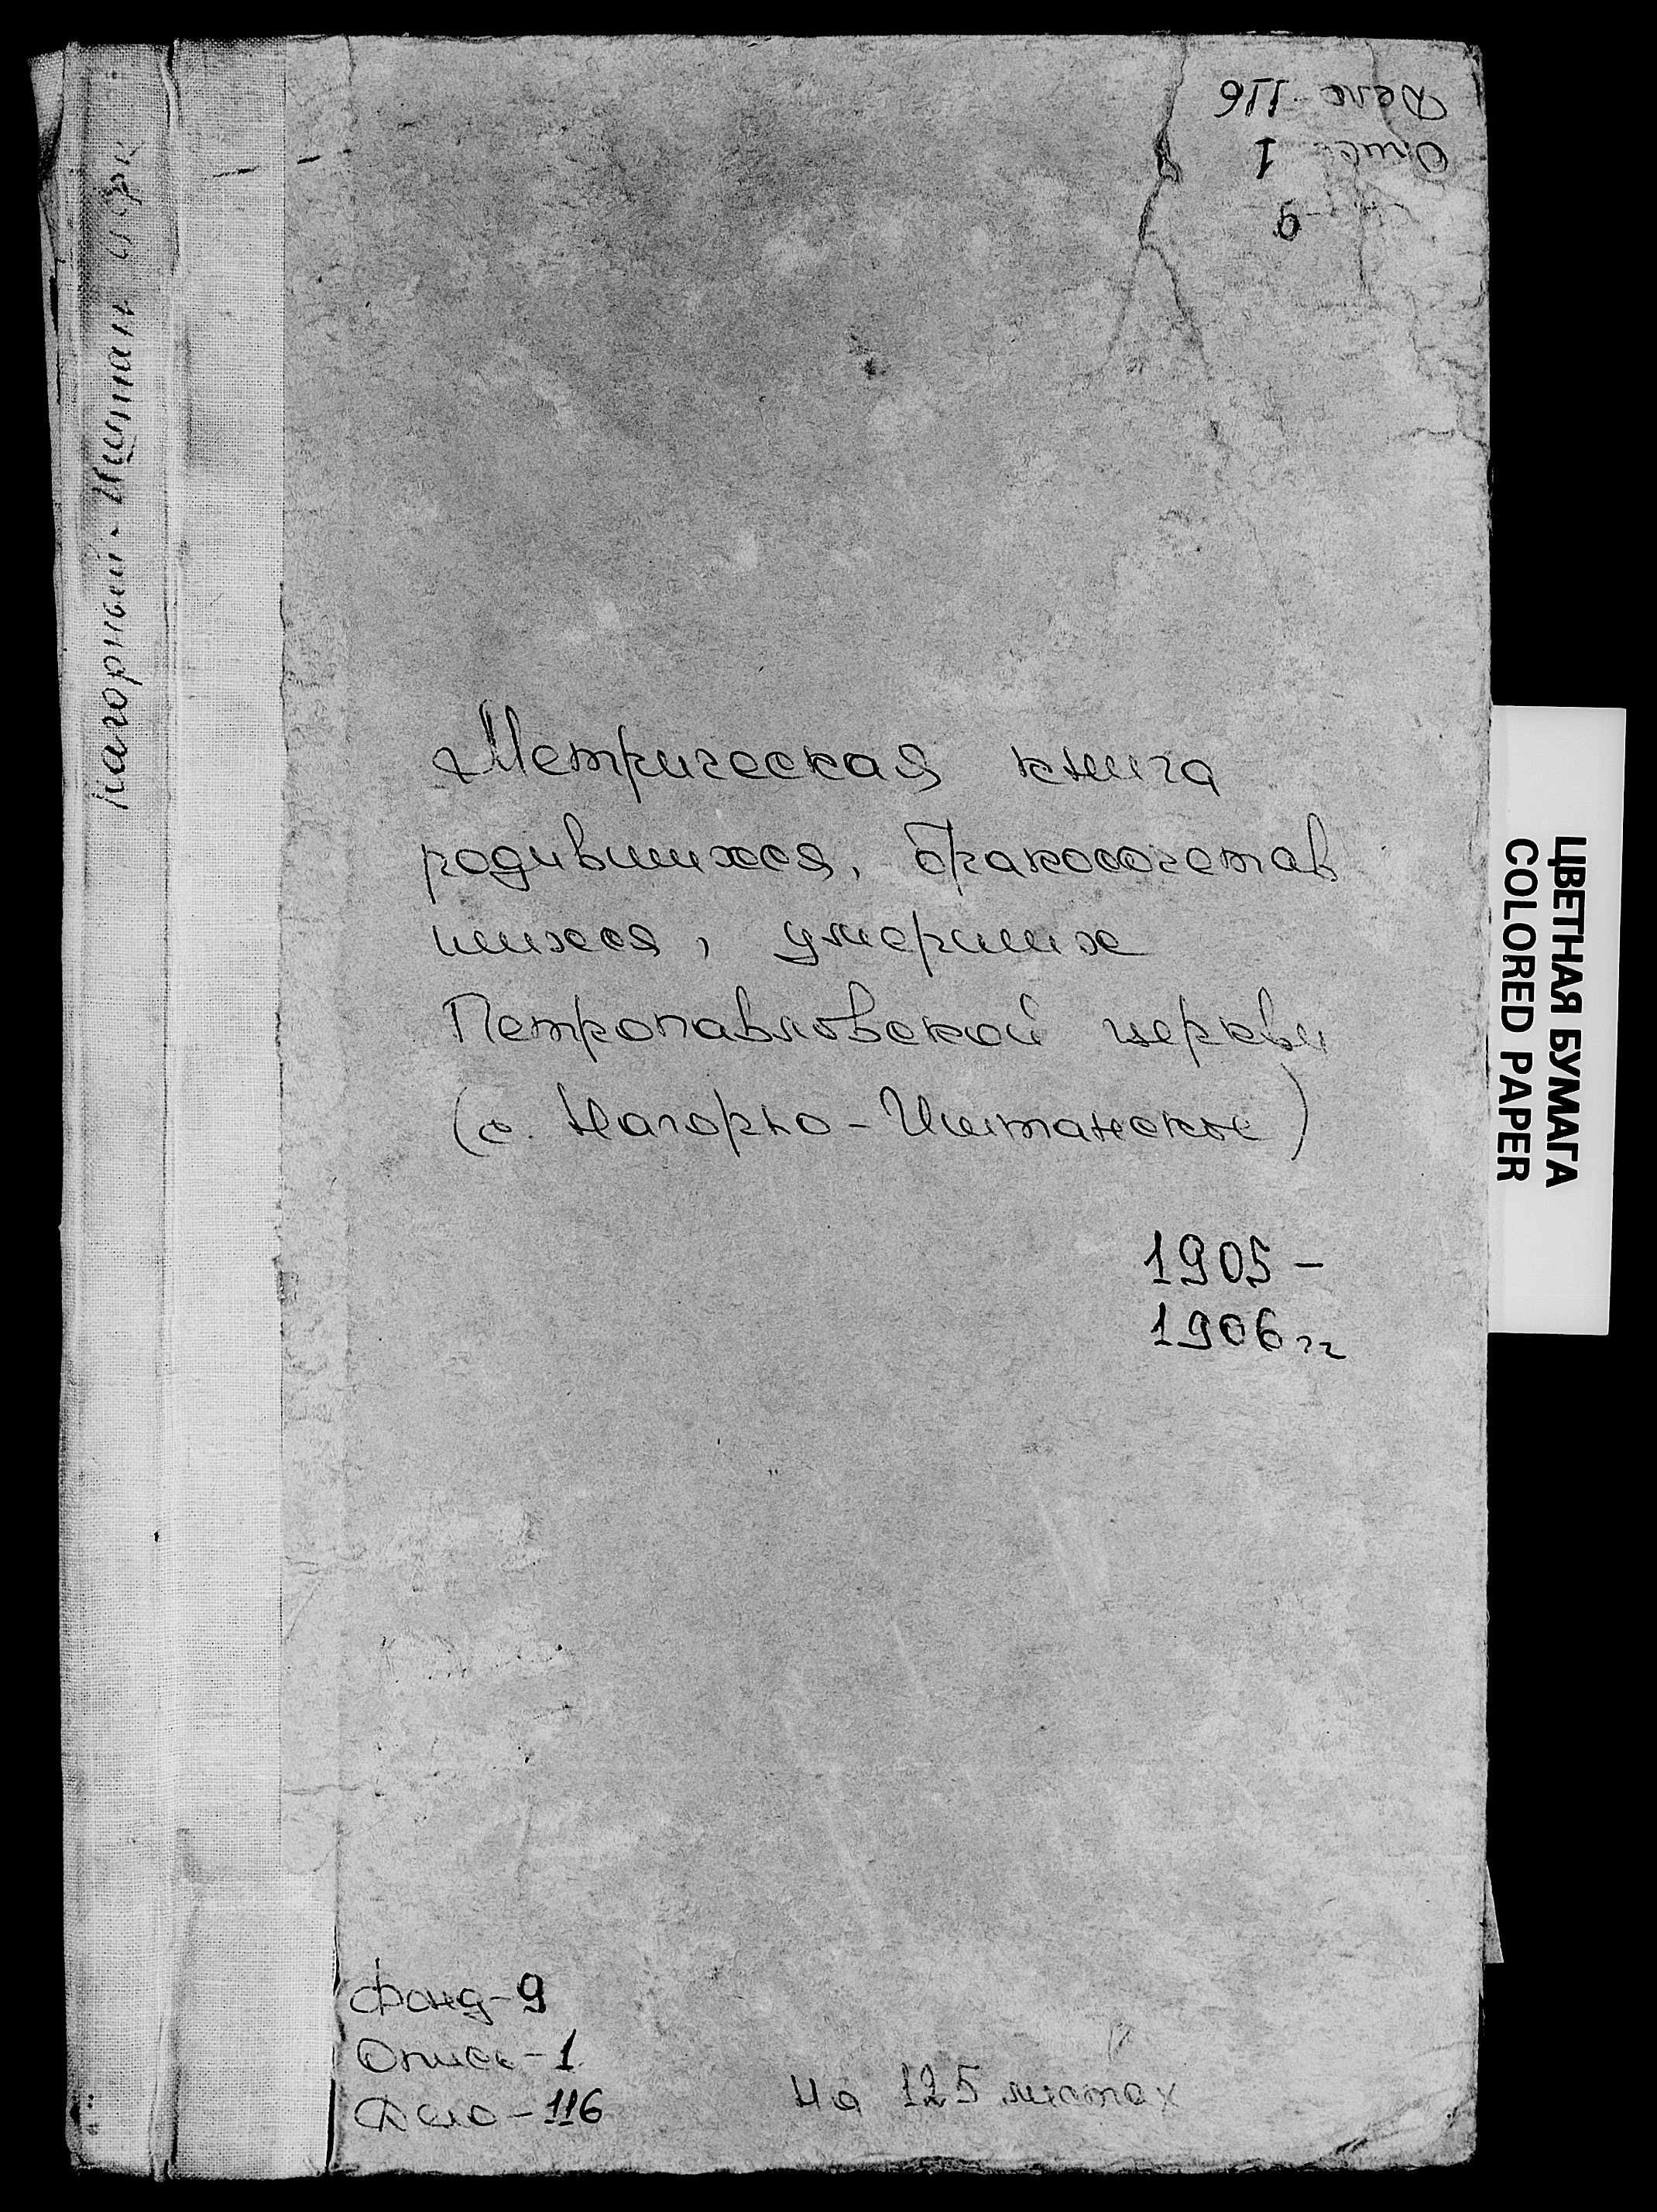 Дело 116
Опись 1
9
Нагорный-Иштан
Метрическая книга
родившихся, бракосочетав
шихся, умерших
Петропавловской церкви
(с. Нагорно-Иштанское)
1905-
1906гг
ЦВЕТНАЯ БУМАГА
COLORED PAPER
Фонд-9
Опись-1
Дело-116
На 125 листах